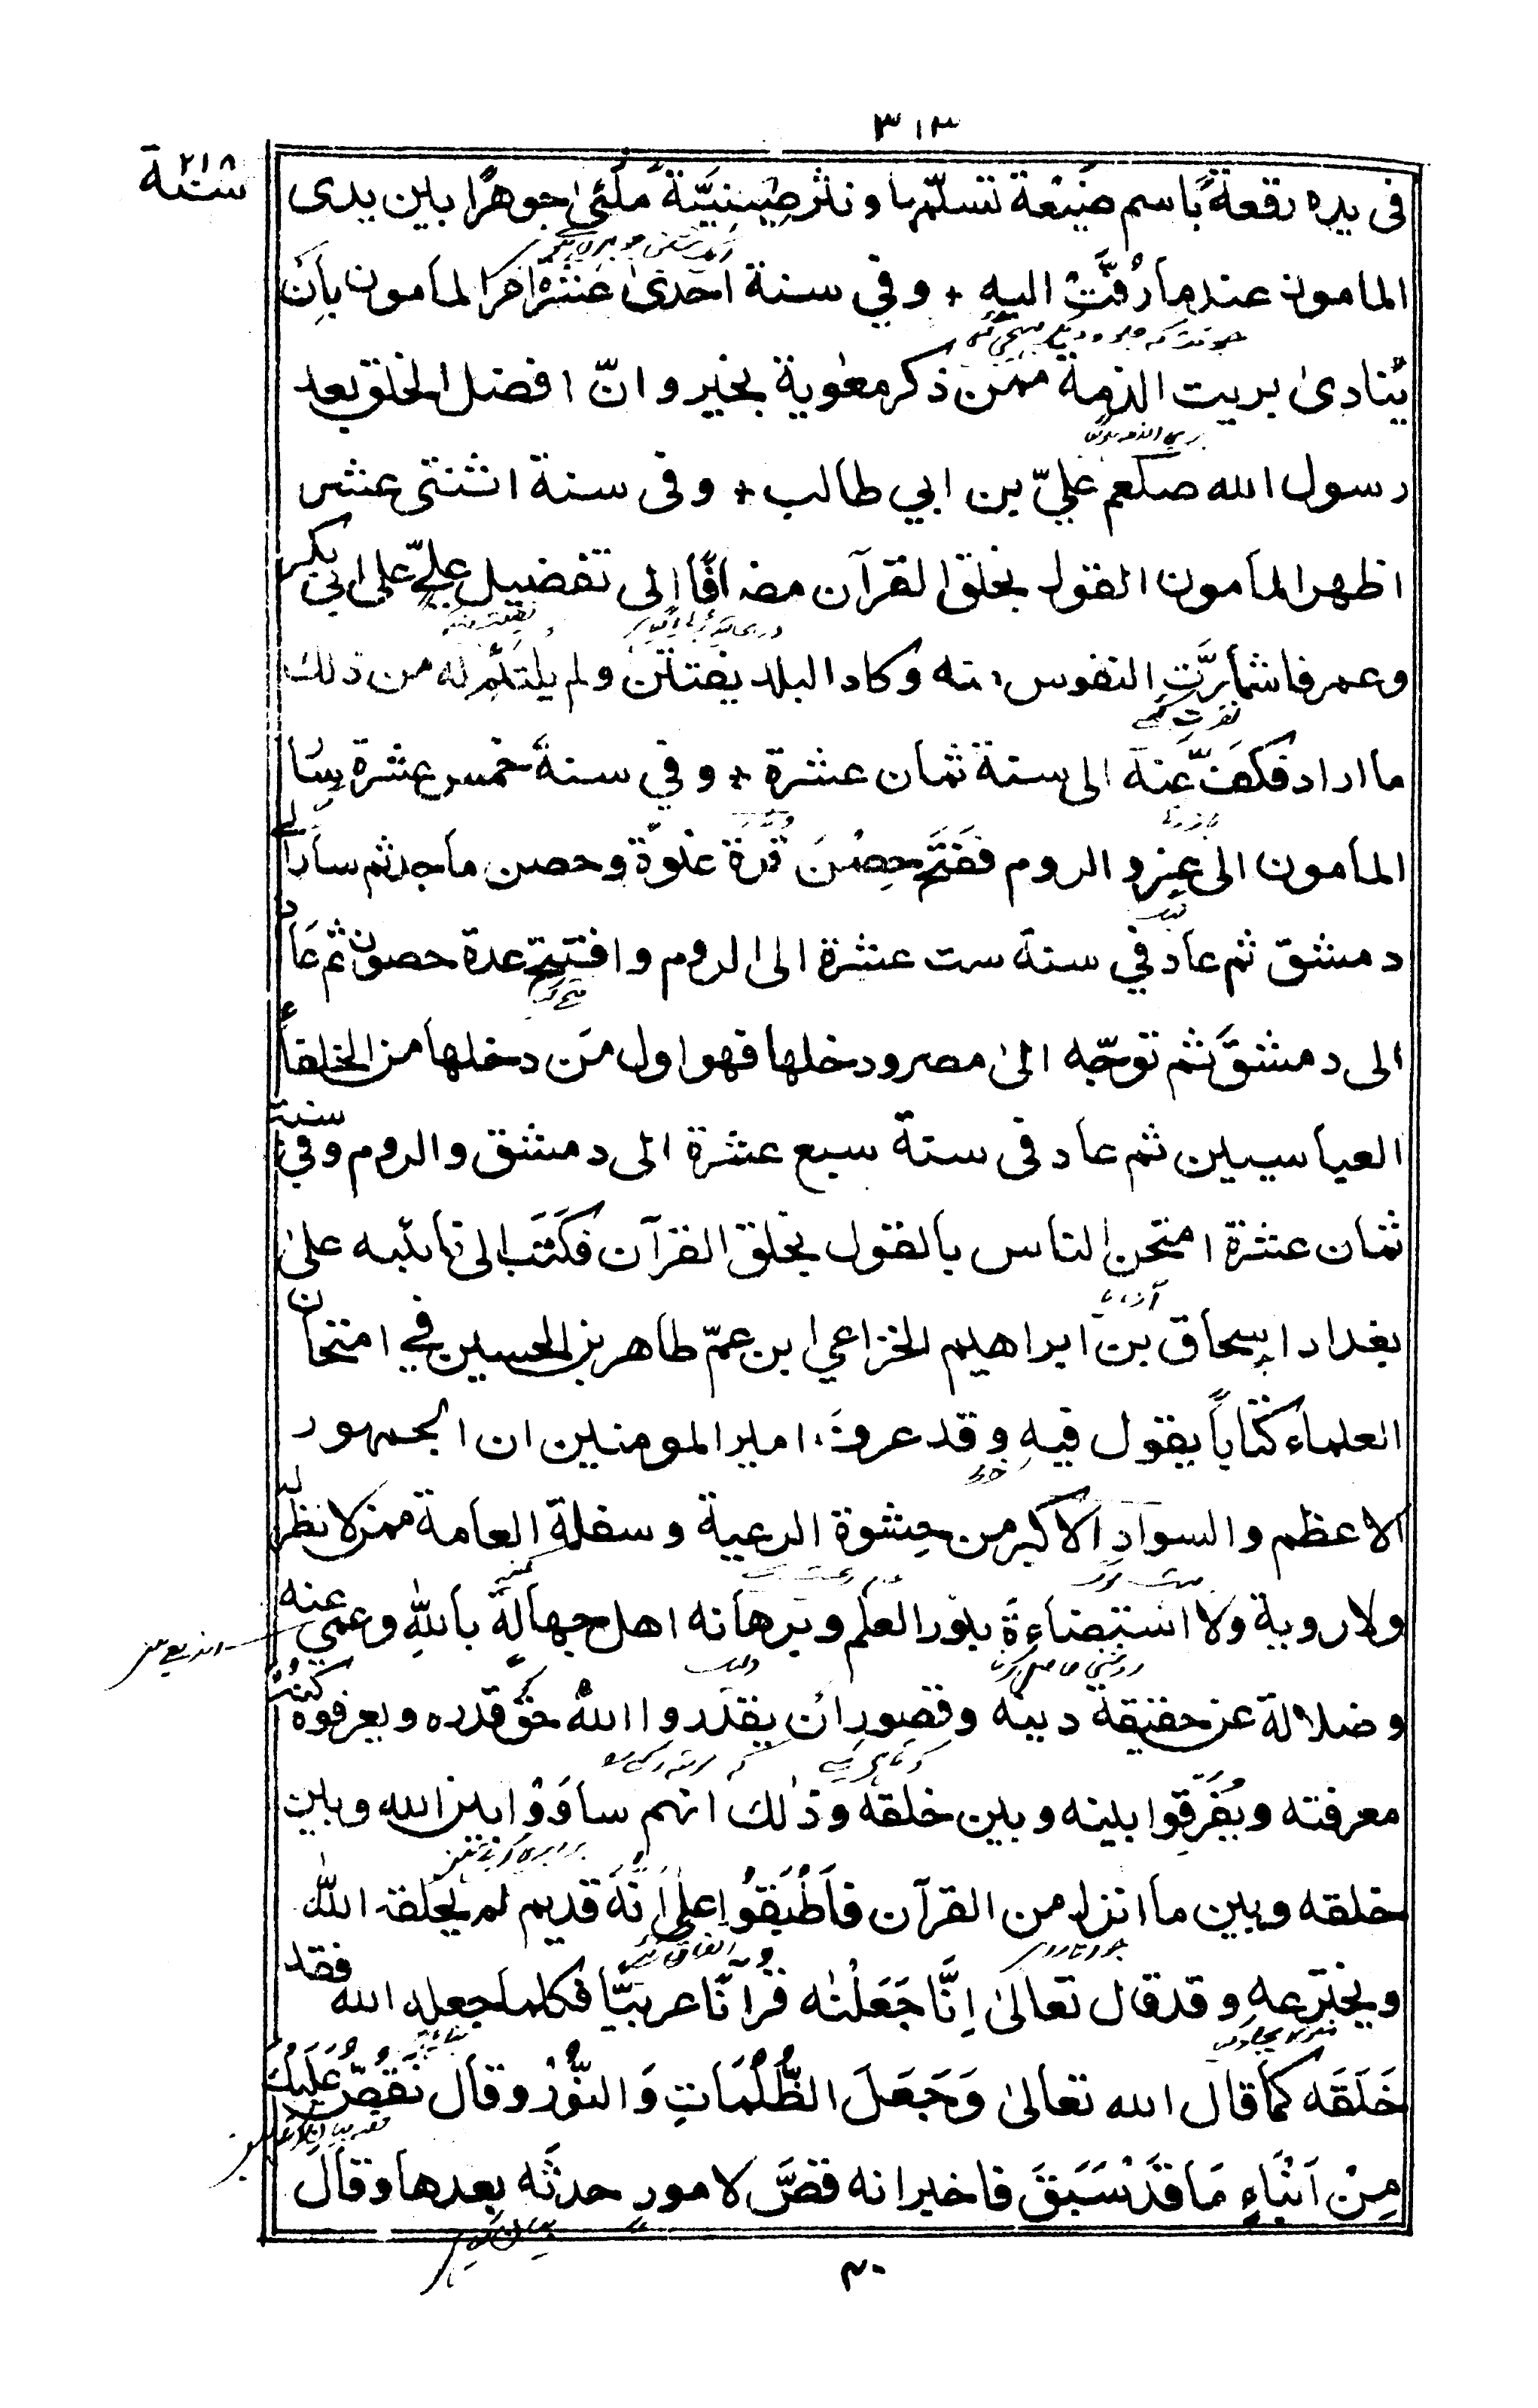 ٣١٣
سنة ٢١٨
فى يده رقعة باسم ضَيْعة تسلّمها و نثر صِيْنِيَّةً مُلْئىٰ جوهرًا بين يدى
المامون عندما زُفَّتْ اليه + وفي سنة احدىٰ عشرة امر المأمون بأن
يُنادىٰ بريت الذمة ممن ذكر معٰوية بخير و انّ افضل الخلق بعد
رسول الله صلعم عليّ بن ابي طالب + وفى سنة اثنتى عشر
اظهر المأمون القول بخلق القرآن مضافًا الى تفضيل عليّ على ابي بكر
وعمر فاشمأزَّتِ النفوس منه وكاد البلد يفتتن ولم يلتئم له من ذلك
ما اراد فكفّ عنه الى سنة ثمان عشرة + وفي سنة خمس عشرة سار
المأمون الى غزو الروم ففَتَح حِصْنَ قرة عنوَةً وحصن ماجد ثم سار الى
دمشق ثم عاد في سنة ست عشرة الى الروم وافتتح عدة حصون ثم عاد
الى دمشق ثم توجّه الىٰ مصر ودخلها فهو اول مَن دخلها من الخلفاء
العباسيين ثم عاد فى سنة سبع عشرة الى دمشق والروم وفي سنة
ثمان عشرة امتحن الناس بالقول بخلق القرآن فكَتَب الى نائبه علىٰ
بغداد إسحاق بن ابراهيم الخزاعي ابن عمّ طاهر بن الحسين في امتحان
العلماء كتاباً يقول فيه وقد عرف امير المومنين ان الجمهور
الاعظم والسواد الاكبر من حِشْوة الرعية و سفلة العامة ممن لا نظر له
ولا روية ولا استضاءة بنور العلم وبرهانه اهل جهالةٍ باللهِ وعمي عنه
وضلالة عن حقيقة دينه وقصور ان يقدروا اللهَ حق قدره ويعرفوه كُنْهَ
معرفته ويُفَرِّقوا بينه وبين خلقه وذٰلك انهم ساوَوْا بين الله وبين
خلقه وبين ما انزل من القرآن فأَطْبَقُوا علىٰ اَنَّهٗ قديم لم يخلقه الله
ويخترعه وقد قال تعالىٰ اِنَّا جَعَلْنٰه قُرْآنًا عربيًّا فكلما جعله الله فقد
خَلَقَه كما قال الله تعالىٰ وَجَعَلَ الظُّلُمَاتِ وَالنُّوْرَ وقال نَقُصُّ عَلَيْكَ
مِنْ اَنْبَاءِ مَا قَدْ سَبَقَ فاخبر انه قصَّ لامورٍ حدثَه بعدها وقال
٤٠